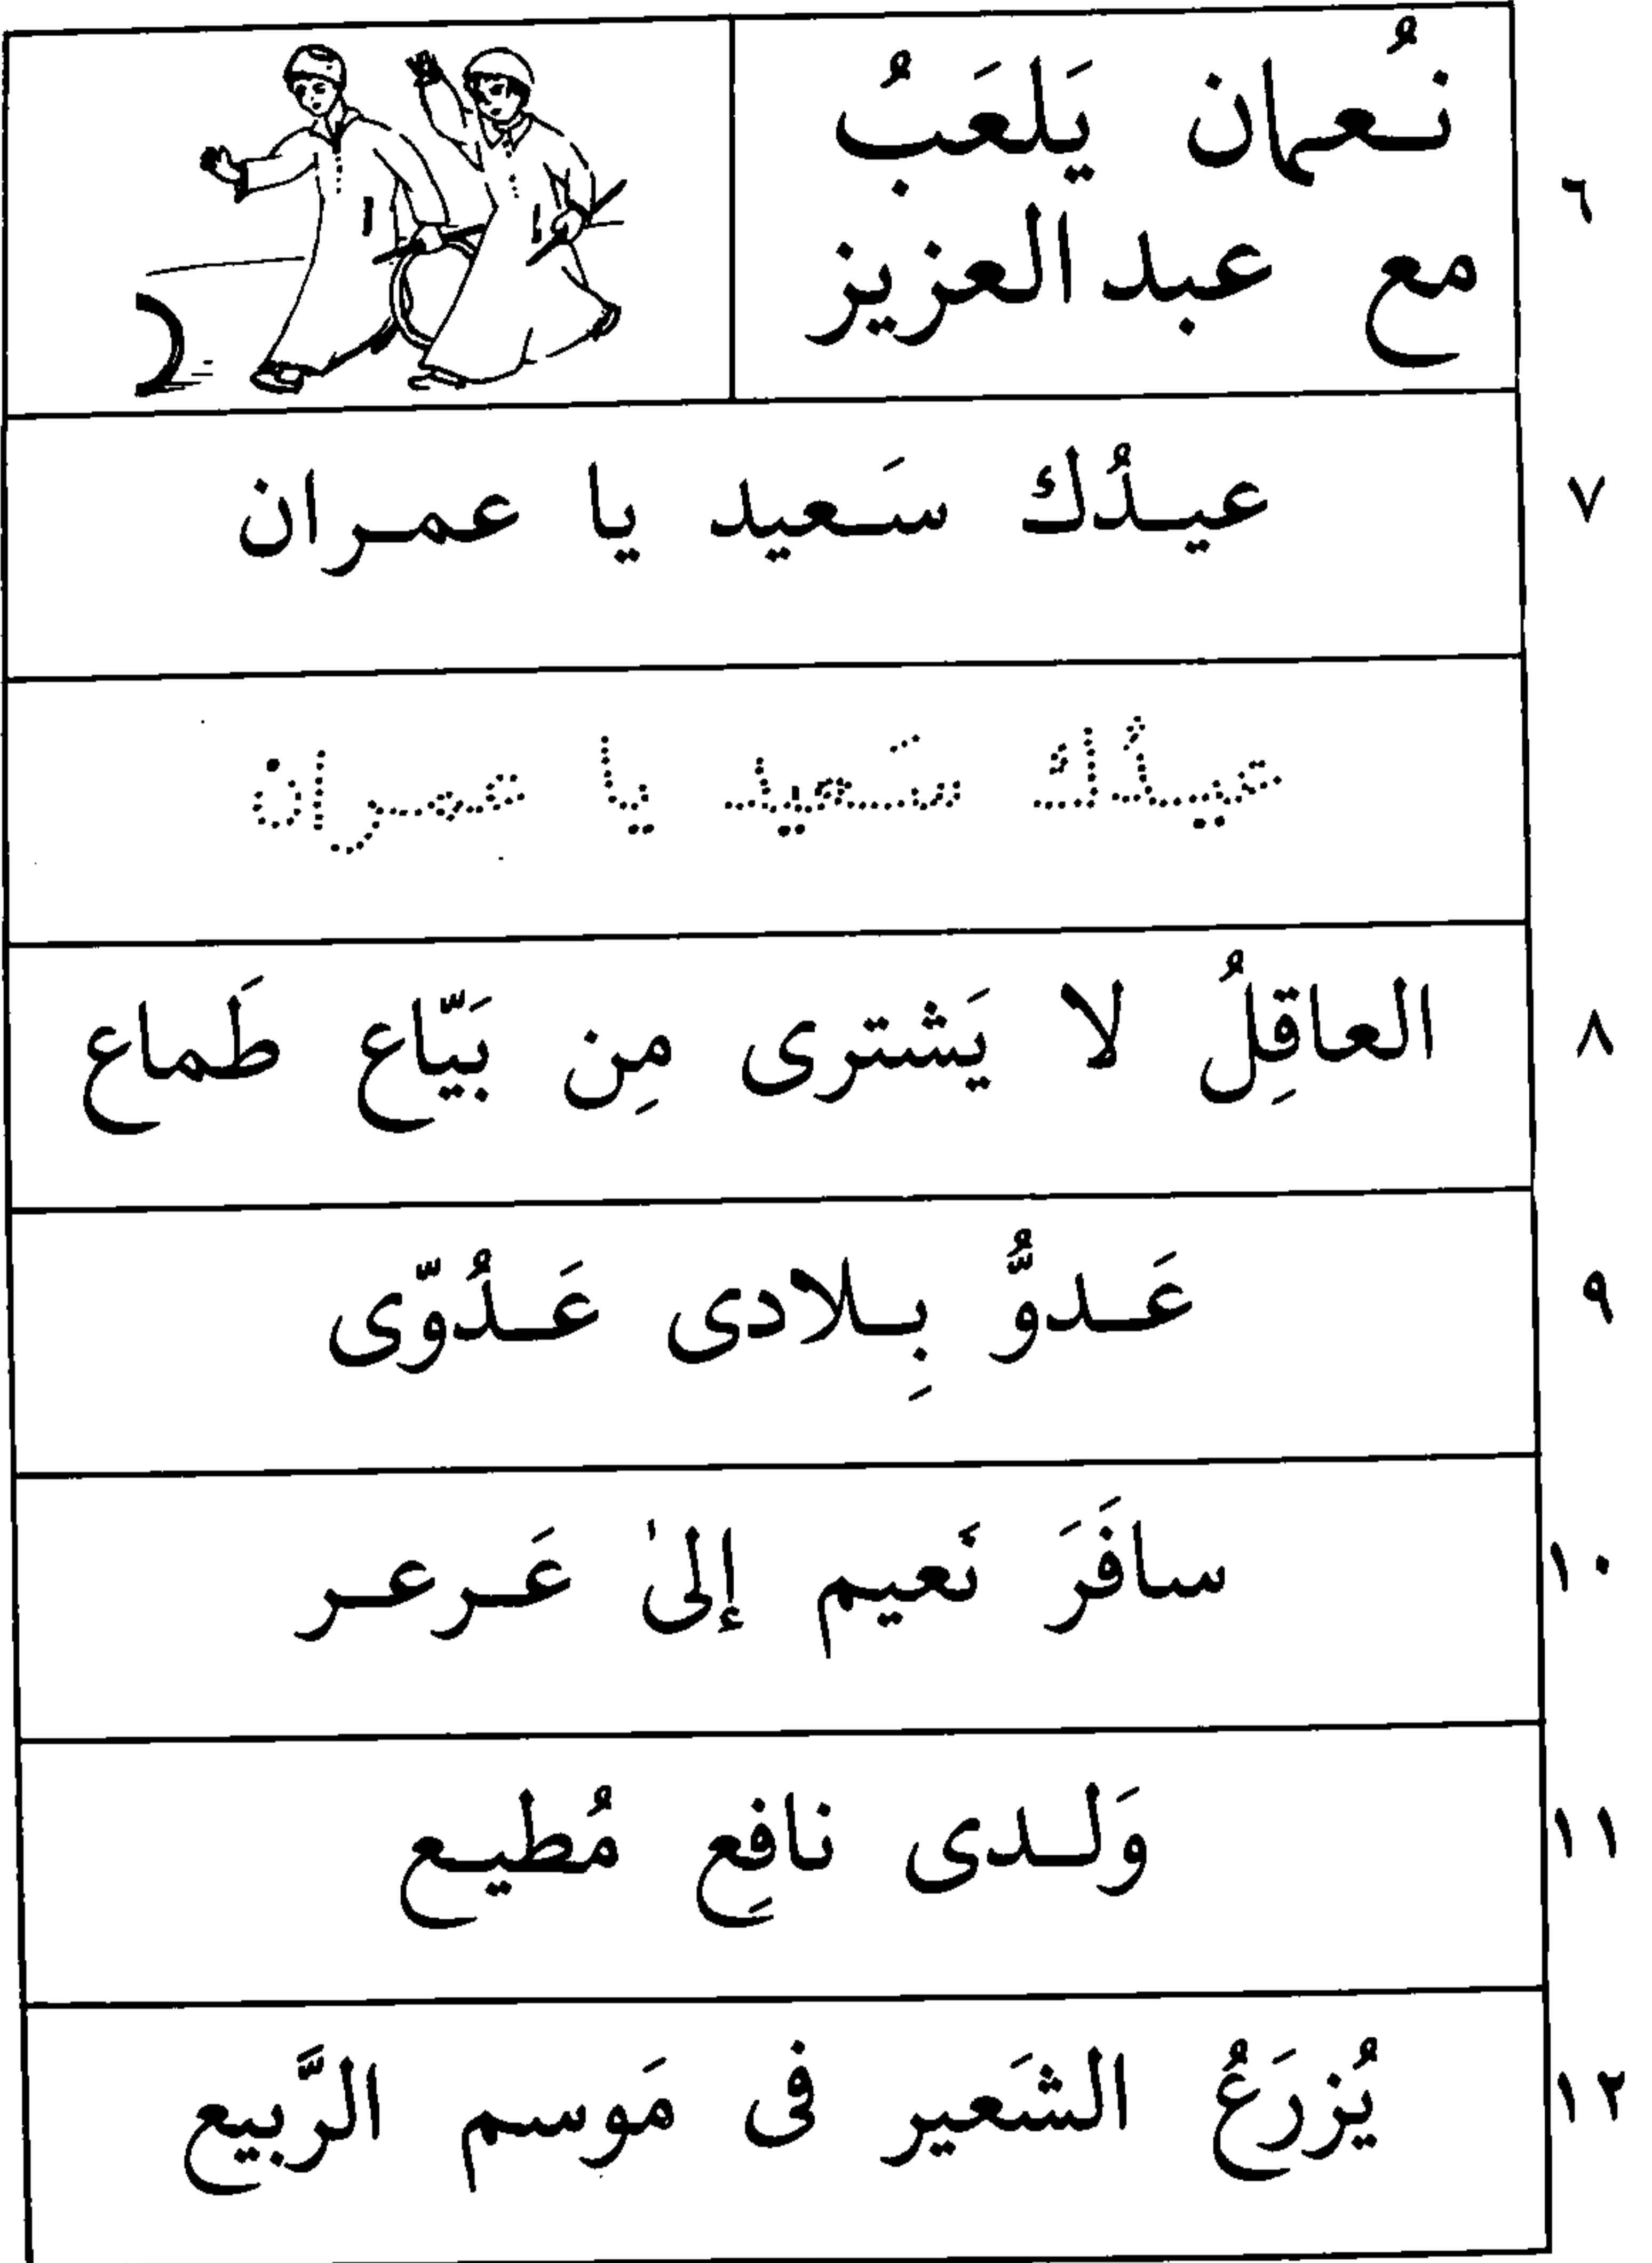 ٦
نُـعمان يَلعَبُ
مع عبد العزيز
٧
عيـدُك سَـعيد يا عمـران
عيـدُك سَـعيد يا عمـران
٨
العاقِلُ لا يَشترى مِن بَيّاع طَماع
٩
عَـدوُّ بِـلادى عَـدُوّى
١٠
سافَرَ نَعيم إلىٰ عَـرعـر
١١
وَلـدى نافِع مُطيـع
١٢
يُزرَعُ الشَعير فى مَوسم الرَّبيع